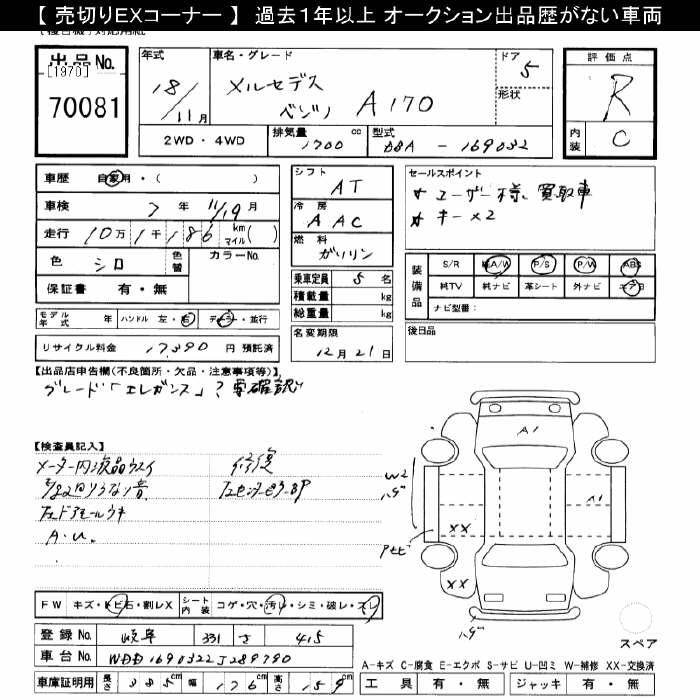 【 売切りEXコーナー 】 過去１年以上 オークション出品歴がない車両
出品No.
[1970]
70081
年式 18/11月
車名・グレード メルセデスベンツ A170
ドア 5
形状
評価点 R
内装 C
2WD・4WD
排気量 1700 cc
型式 DBA - 169032
車歴 自家用・( )
車検 7 年 11/19 月
走行 10万1千186 km マイル( )
色 シロ
色替
カラーNo.
保証書 有・無
モデル年式 年
ハンドル 左・右
ディーラー・並行
リサイクル料金 17,390 円 預託済
シフト AT
冷房 AAC
燃料 ガソリン
乗車定員 5 名
積載量 kg
総重量 kg
名変期限 12月21日
セールスポイント
☆ユーザー様、買取車
☆キー×2
装備品
S/R 純A/W P/S P/W ABS
純TV 純ナビ 革シート 外ナビ エアB
ナビ型番：
後日品
【出品店申告欄(不良箇所・欠品・注意事項等)】
グレード「エレガンス」？要確認
【検査員記入】
メーター内液晶ウスイ
A・U.
修復
W2
ハゲ
A1
A1
XX
XX
ハゲ
FW キズ・トビ石・割レX
シート内装 コゲ・穴・汚レ・シミ・破レ・スレ
登録No. 岐阜 331 さ 415
車台No. WDD1690322J289790
車庫証明用 長さ 385cm 幅 176cm 高さ 159cm
スペア
A-キズ C-腐食 E-エクボ S-サビ U-凹ミ W-補修 XX-交換済
工具 有・無 ジャッキ 有・無